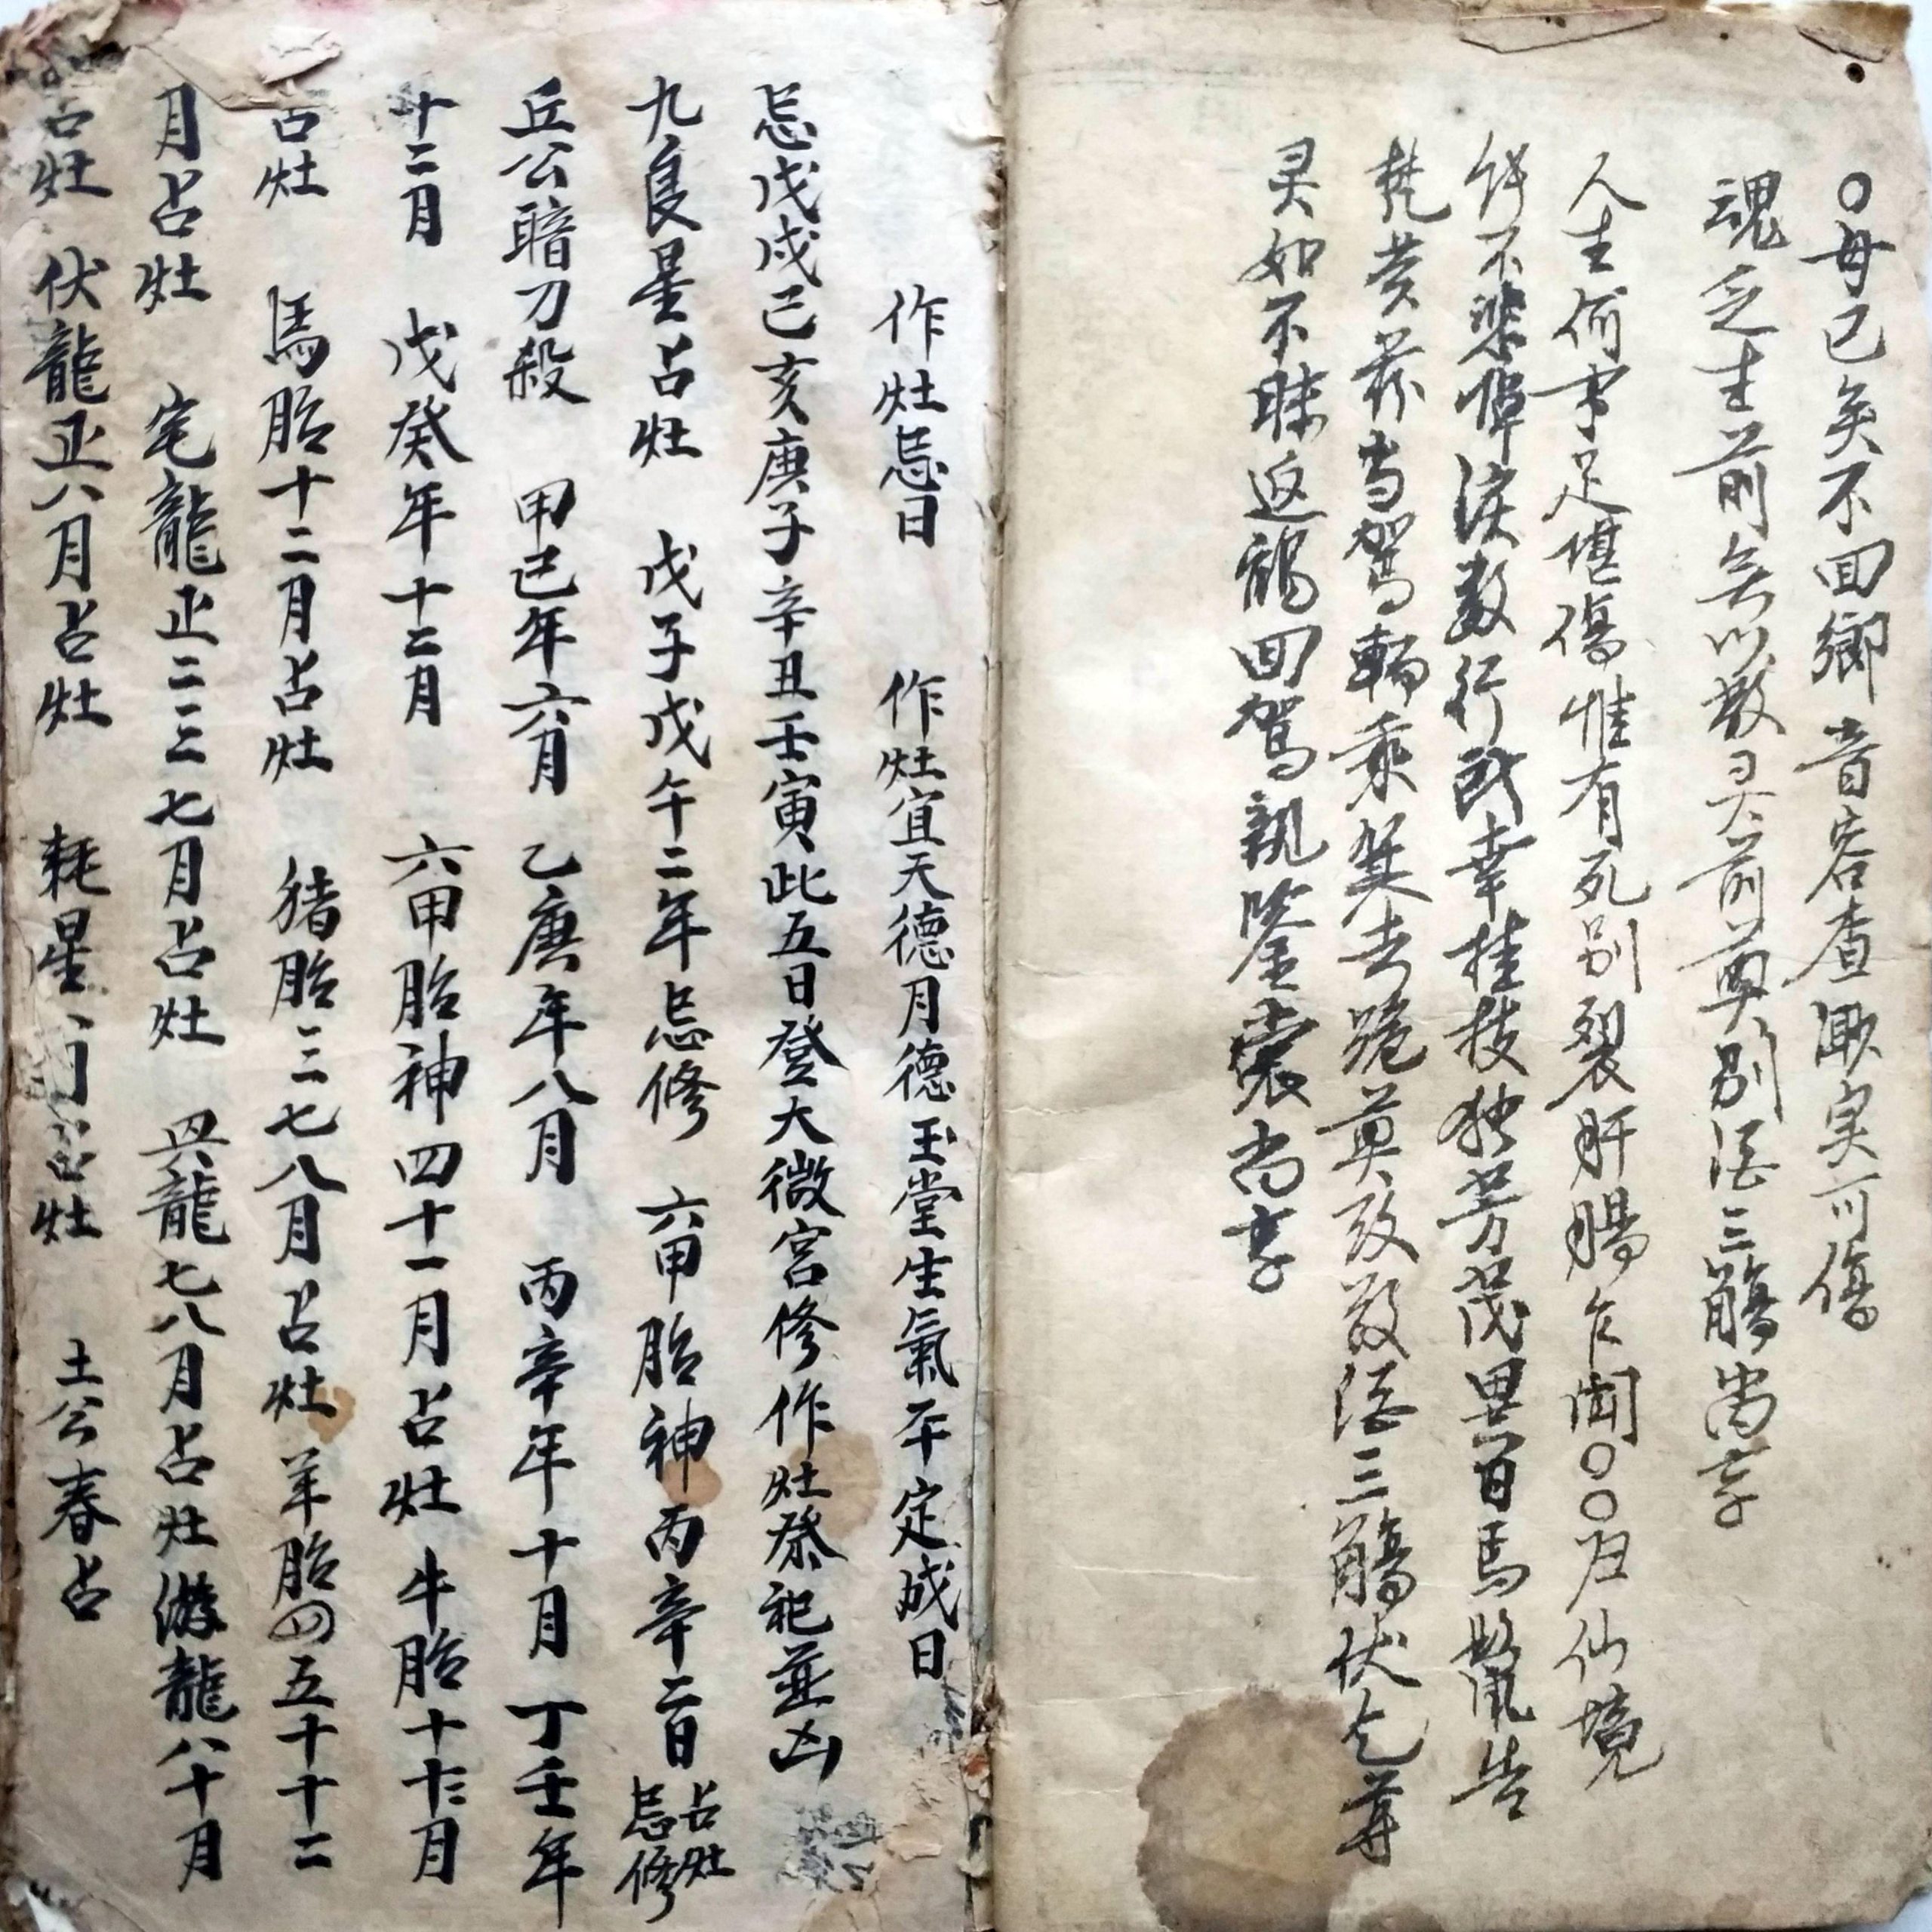 〇母已矣不回鄉音容查㴑实可傷
魂乏生前無以散灵前奠别酒三觴尚享
人生何事足堪傷惟有死别裂肝腸乍闻〇〇归仙境
不悲啼淚数行幸桂枝独芳茂里百馬鬣告
芳兹当駕輀乘其去跪奠致敬酒三觴伏乞尊
灵如不昧返鶴回駕親鉴裳尚享
作灶忌日　作灶宜天德月德玉堂生氣平定成日
忌戊戌己亥庚子辛丑壬寅此五日登大微宮修作灶祭祀並凶
九良星占灶　戊子戊午二年忌修　六甲胎神丙辛二日占灶忌修
丘公暗刀殺　甲己年六月　乙庚年八月　丙辛年十月　丁壬年
十二月　戊癸年十二月　六甲胎神四十一月占灶　牛胎十十二月
占灶　馬胎十二月占灶　猪胎三七八月占灶　羊胎四五十十二
月占灶　宅龍正二三七月占灶　龍七八月占灶　游龍八十月
占灶　伏龍正八月占灶　耗星　月占灶　土公春占